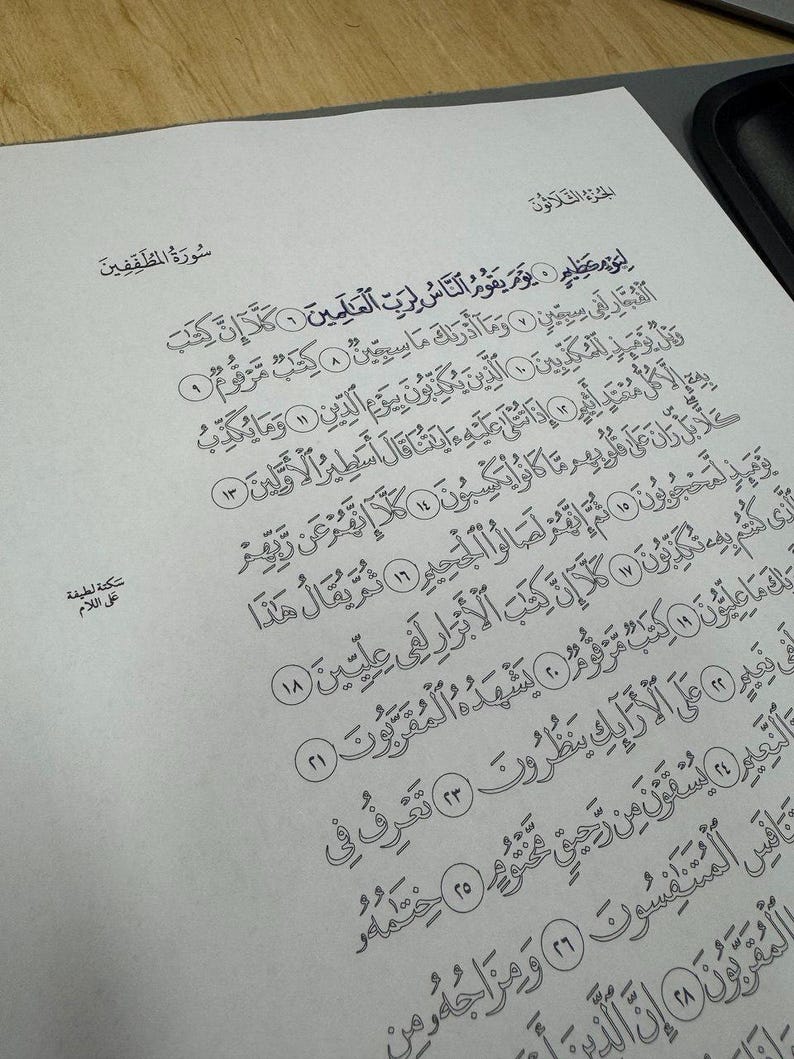 الجُزْءُ الثَّلَاثُونَ
سُورَةُ المُطَفِّفِينَ
لِيَوْمٍ عَظِيمٖ ٥ يَوْمَ يَقُومُ ٱلنَّاسُ لِرَبِّ ٱلۡعَٰلَمِينَ ٦ كَلَّآ إِنَّ كِتَٰبَ
ٱلۡفُجَّارِ لَفِي سِجِّينٖ ٧ وَمَآ أَدۡرَىٰكَ مَا سِجِّينٞ ٨ كِتَٰبٞ مَّرۡقُومٞ ٩
وَيۡلٞ يَوۡمَئِذٖ لِّلۡمُكَذِّبِينَ ١٠ ٱلَّذِينَ يُكَذِّبُونَ بِيَوۡمِ ٱلدِّينِ ١١ وَمَا يُكَذِّبُ
بِهِۦٓ إِلَّا كُلُّ مُعۡتَدٍ أَثِيمٍ ١٢ إِذَا تُتۡلَىٰ عَلَيۡهِ ءَايَٰتُنَا قَالَ أَسَٰطِيرُ ٱلۡأَوَّلِينَ ١٣
كَلَّاۖ بَلۡۜ رَانَ عَلَىٰ قُلُوبِهِم مَّا كَانُواْ يَكۡسِبُونَ ١٤ كَلَّآ إِنَّهُمۡ عَن رَّبِّهِمۡ
يَوۡمَئِذٖ لَّمَحۡجُوبُونَ ١٥ ثُمَّ إِنَّهُمۡ لَصَالُواْ ٱلۡجَحِيمِ ١٦ ثُمَّ يُقَالُ هَٰذَا
ٱلَّذِي كُنتُم بِهِۦ تُكَذِّبُونَ ١٧ كَلَّآ إِنَّ كِتَٰبَ ٱلۡأَبۡرَارِ لَفِي عِلِّيِّينَ ١٨
مَا عِلِّيُّونَ ١٩ كِتَٰبٞ مَّرۡقُومٞ ٢٠ يَشۡهَدُهُ ٱلۡمُقَرَّبُونَ ٢١
لَفِي نَعِيمٍ ٢٢ عَلَى ٱلۡأَرَآئِكِ يَنظُرُونَ ٢٣ تَعۡرِفُ فِي
ٱلنَّعِيمِ ٢٤ يُسۡقَوۡنَ مِن رَّحِيقٖ مَّخۡتُومٍ ٢٥ خِتَٰمُهُۥ
ٱلۡمُتَنَٰفِسُونَ ٢٦ وَمِزَاجُهُۥ مِن
ٱلۡمُقَرَّبُونَ ٢٨ إِنَّ ٱلَّذِينَ
سَكتة لطيفة
على اللام